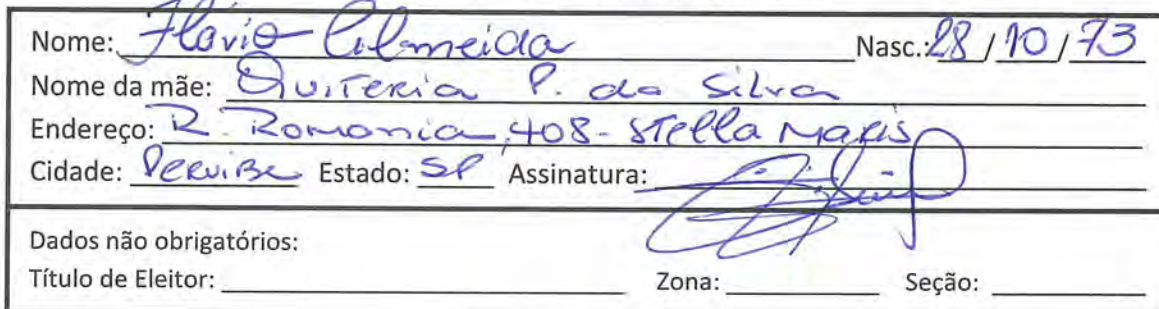 Nome: Flavio Almeida Nasc.: 28 / 10 / 73
Nome da mãe: Quiteria P. da Silva
Endereço: R. Romania, 408 - Stella Maris
Cidade: Peruibe Estado: SP Assinatura:
Dados não obrigatórios:
Título de Eleitor: Zona: Seção: